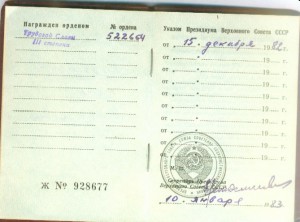 Награжден орденом № ордена
Трудовой Славы
III степени
522664
Ж № 928677
Указом Президиума Верховного Совета СССР
от 15 декабря 19
от " 19
от " 19
от " 19
от " 19
от " 19
от " 19
от
М. П.
Секретарь Президиума
Верховного Совета
10 января